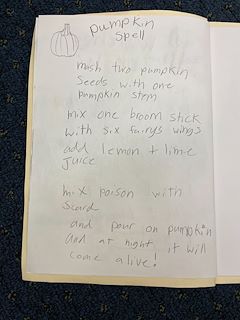 pumpkin
spell
mash two pumpkin
seeds with one
pumpkin stem
mix one broom stick
with six fairys wings
add lemon + lime
juice
mix poison with
and pour on pumpkin
and at night it will
come alive!